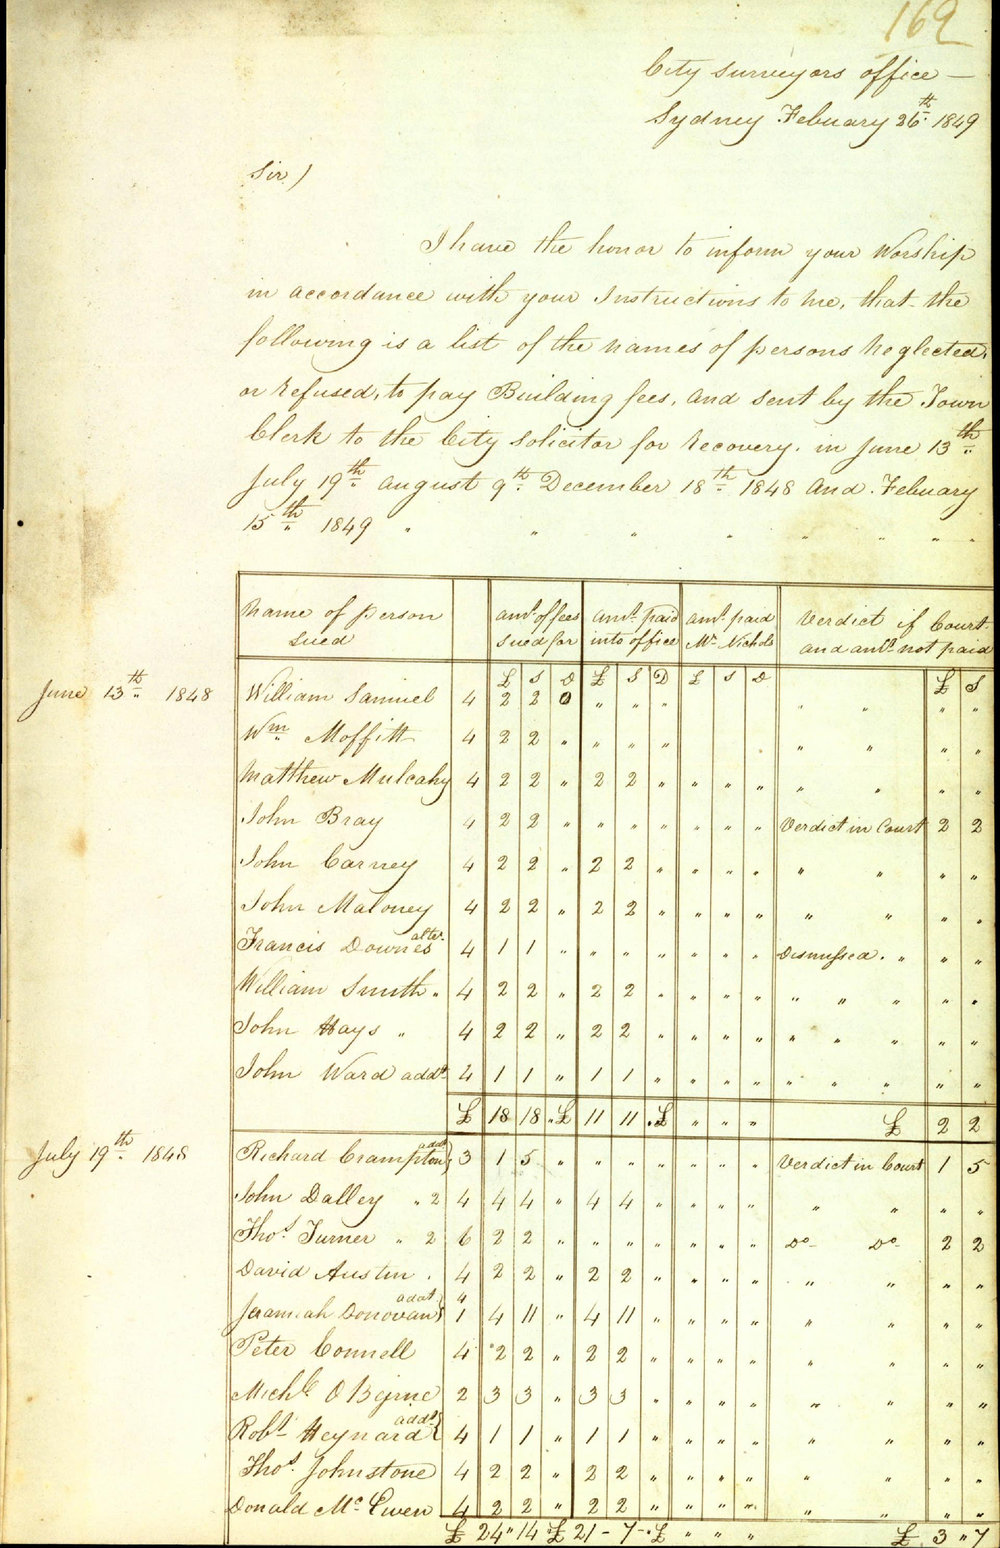 169
City Surveyors office —
Sydney Febuary 26th 1849
Sir)
I have the honor to inform your Worship
in accordance with your Instructions to me, that the
following is a list of the names of persons neglected,
or refused, to pay Building fees, and sent by the Town
Clerk to the City Solicitor for Recovery. in June 13th
July 19th august 9th December 18th 1848 and Febuary
15th 1849 " " " " " " " "
Name of person sued | | amt. of fees sued for | amt. paid into office | amt. paid Mr. Nichols | Verdict if Court and amt. not paid
£ S D £ S D £ S D £ S
June 13th 1848
William Samuel 4 2 2 0 " " " " " " "
Wm Moffitt 4 2 2 " " " " " " " "
Matthew Mulcahy 4 2 2 " 2 2 " " " " " " " "
John Bray 4 2 2 " " " " " " " Verdict in Court 2 2
John Carney 4 2 2 " 2 2 " " " " " " " "
John Maloney 4 2 2 " 2 2 " " " " " " " "
Francis Downes alter. 4 1 1 " " " " " " " Dismissed. " " "
William Smith " 4 2 2 " 2 2 " " " " " " " " "
John Hays " 4 2 2 " 2 2 " " " " " " " " "
John Ward addt 4 1 1 " 1 1 " " " " " " " " "
£ 18 18 " £ 11 11 " £ " " " £ 2 2
July 19th 1848
Richard Crampton addt } 3 1 5 " " " " " " " Verdict in Court 1 5
John Dalley " 2 4 4 4 " 4 4 " " " " " " " "
Thos. Turner " 2 6 2 2 " " " " " " " Do- Do- 2 2
David Austin . 4 2 2 " 2 2 " " " " " " " "
Jeramiah Donovan addt } 4 1 4 11 " 4 11 " " " " " " " "
Peter Connell 4 2 2 " 2 2 " " " " " " " "
Michl. O Byrne 2 3 3 " 3 3 " " " " " " " "
Robt. Heynard addt { 4 1 1 " 1 1 " " " " " " " "
Thos. Johnstone 4 2 2 " 2 2 " " " " " " " "
Donald Mc. Ewen 4 2 2 " 2 2 " " " " " " " "
£ 24 " 14 " £ 21 - 7 - " £ " " " £ 3 " 7